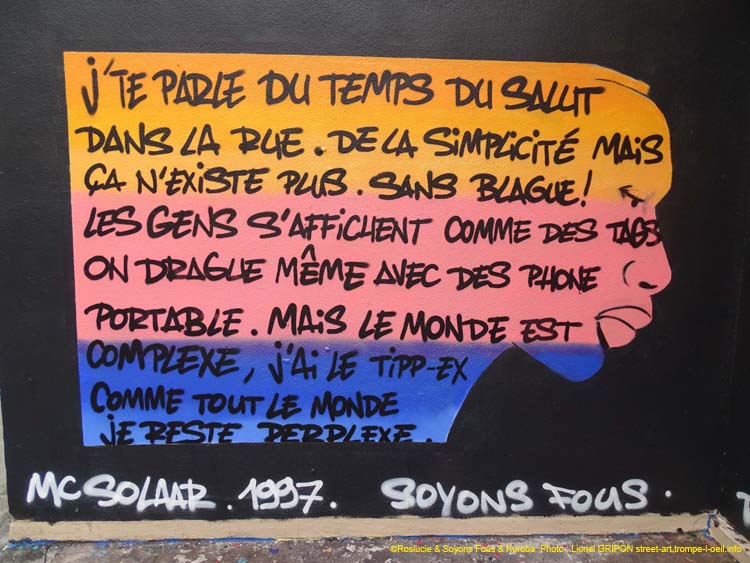 J'TE PARLE DU TEMPS DU SALUT
DANS LA RUE. DE LA SIMPLICITÉ MAIS
ÇA N'EXISTE PLUS. SANS BLAGUE!
LES GENS S'AFFICHENT COMME DES TAGS
ON DRAGUE MÊME AVEC DES PHONE
PORTABLE. MAIS LE MONDE EST
COMPLEXE, J'AI LE TIPP-EX
COMME TOUT LE MONDE
JE RESTE PERPLEXE.
MC SOLAAR. 1997. SOYONS FOUS.
©Roslucie & Soyons Fous & Kyroba Photo : Lionel GRIPON street-art.trompe-l-oeil.info